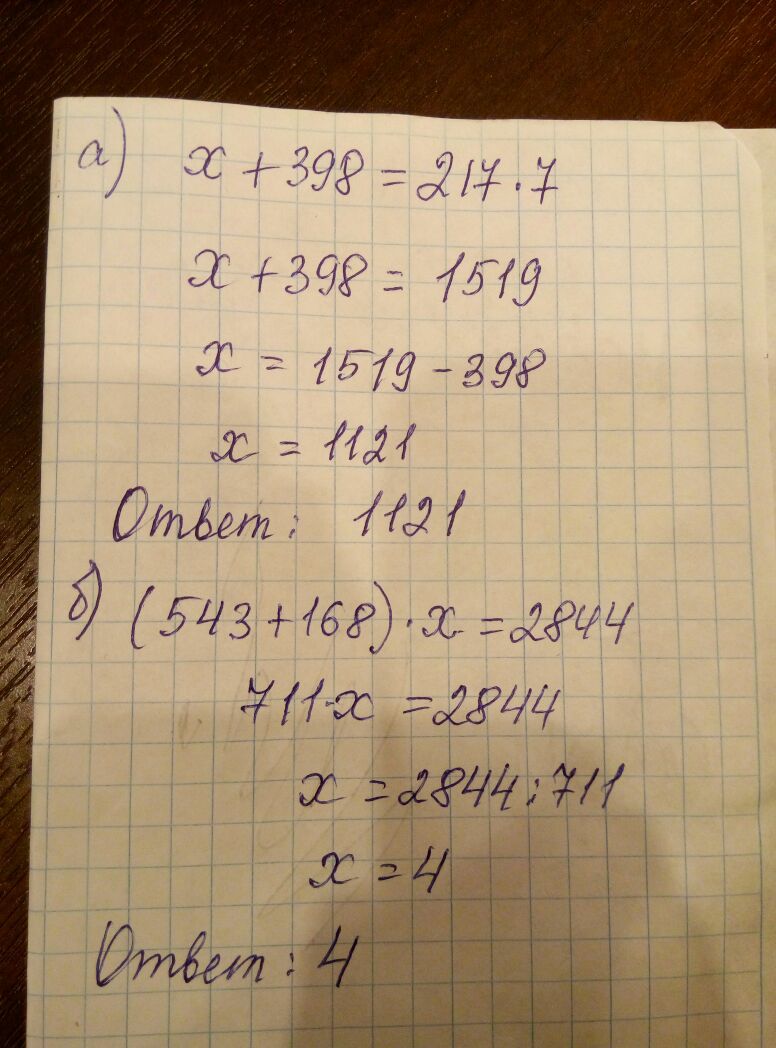 а) x + 398 = 217 · 7
x + 398 = 1519
x = 1519 - 398
x = 1121
Ответ: 1121
б) (543 + 168) · x = 2844
711·x = 2844
x = 2844 : 711
x = 4
Ответ: 4